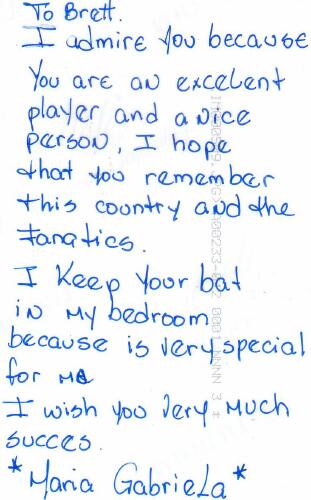 To Brett.
I admire you because
You are an excelent
player and a nice
person, I hope
that you remember
this country and the
Fanatics.
I Keep your bat
in my bedroom
because is very special
for me
I wish you very much
succes.
*Maria Gabriela*